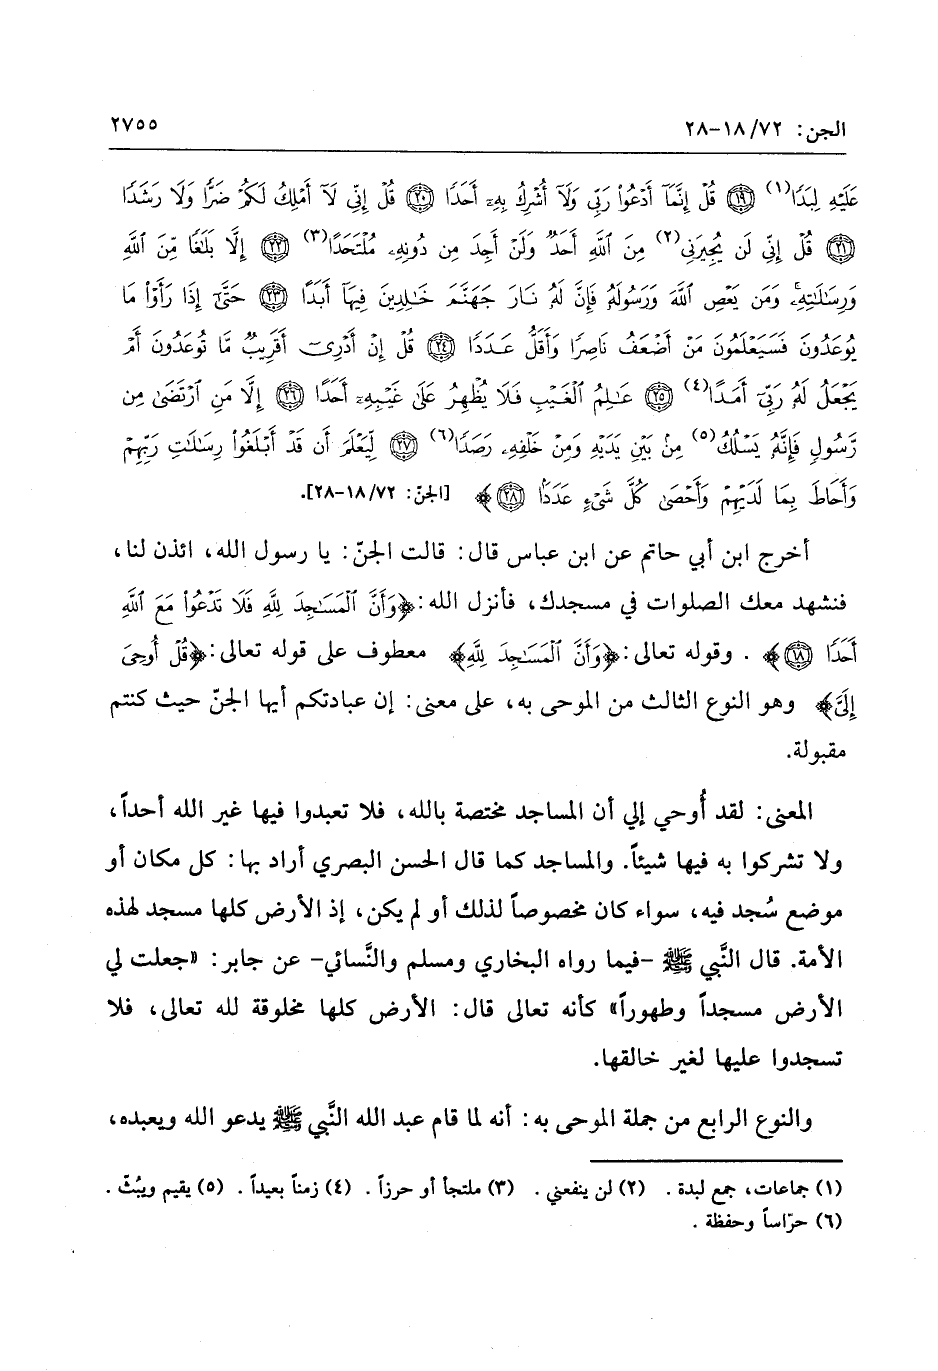 الجن: ٧٢/ ١٨-٢٨ ٢٧٥٥
عَلَيْهِ لِبَدًا(١) ﴿١٩﴾ قُلْ إِنَّمَآ أَدْعُواْ رَبِّى وَلَآ أُشْرِكُ بِهِۦٓ أَحَدًا ﴿٢٠﴾ قُلْ إِنِّى لَآ أَمْلِكُ لَكُمْ ضَرًّا وَلَا رَشَدًا
﴿٢١﴾ قُلْ إِنِّى لَن يُجِيرَنِى(٢) مِنَ ٱللَّهِ أَحَدٌ وَلَنْ أَجِدَ مِن دُونِهِۦ مُلْتَحَدًا(٣) ﴿٢٢﴾ إِلَّا بَلَٰغًا مِّنَ ٱللَّهِ
وَرِسَٰلَٰتِهِۦ وَمَن يَعْصِ ٱللَّهَ وَرَسُولَهُۥ فَإِنَّ لَهُۥ نَارَ جَهَنَّمَ خَٰلِدِينَ فِيهَآ أَبَدًا ﴿٢٣﴾ حَتَّىٰٓ إِذَا رَأَوْاْ مَا
يُوعَدُونَ فَسَيَعْلَمُونَ مَنْ أَضْعَفُ نَاصِرًا وَأَقَلُّ عَدَدًا ﴿٢٤﴾ قُلْ إِنْ أَدْرِىٓ أَقَرِيبٌ مَّا تُوعَدُونَ أَمْ
يَجْعَلُ لَهُۥ رَبِّىٓ أَمَدًا(٤) ﴿٢٥﴾ عَٰلِمُ ٱلْغَيْبِ فَلَا يُظْهِرُ عَلَىٰ غَيْبِهِۦٓ أَحَدًا ﴿٢٦﴾ إِلَّا مَنِ ٱرْتَضَىٰ مِن
رَّسُولٍ فَإِنَّهُۥ يَسْلُكُ(٥) مِنۢ بَيْنِ يَدَيْهِ وَمِنْ خَلْفِهِۦ رَصَدًا(٦) ﴿٢٧﴾ لِّيَعْلَمَ أَن قَدْ أَبْلَغُواْ رِسَٰلَٰتِ رَبِّهِمْ
وَأَحَاطَ بِمَا لَدَيْهِمْ وَأَحْصَىٰ كُلَّ شَىْءٍ عَدَدًا ﴿٢٨﴾ ﴾ [الجنّ: ٧٢/ ١٨-٢٨].
أخرج ابن أبي حاتم عن ابن عباس قال: قالت الجنّ: يا رسول الله، ائذن لنا،
فنشهد معك الصلوات في مسجدك، فأنزل الله: ﴿وَأَنَّ ٱلْمَسَٰجِدَ لِلَّهِ فَلَا تَدْعُواْ مَعَ ٱللَّهِ
أَحَدًا ﴿١٨﴾ ﴾. وقوله تعالى: ﴿وَأَنَّ ٱلْمَسَٰجِدَ لِلَّهِ﴾ معطوف على قوله تعالى: ﴿قُلْ أُوحِىَ
إِلَىَّ﴾ وهو النوع الثالث من الموحى به، على معنى: إن عبادتكم أيها الجنّ حيث كنتم
مقبولة.
المعنى: لقد أُوحي إلي أن المساجد مختصة بالله، فلا تعبدوا فيها غير الله أحداً،
ولا تشركوا به فيها شيئاً. والمساجد كما قال الحسن البصري أراد بها: كل مكان أو
موضع سُجد فيه، سواء كان مخصوصاً لذلك أو لم يكن، إذ الأرض كلها مسجد لهذه
الأمة. قال النَّبي ﷺ -فيما رواه البخاري ومسلم والنَّسائي- عن جابر: «جعلت لي
الأرض مسجداً وطهوراً» كأنه تعالى قال: الأرض كلها مخلوقة لله تعالى، فلا
تسجدوا عليها لغير خالقها.
والنوع الرابع من جملة الموحى به: أنه لما قام عبد الله النَّبي ﷺ يدعو الله ويعبده،
(١) جماعات، جمع لبدة. (٢) لن ينفعني. (٣) ملتجأ أو حرزاً. (٤) زمناً بعيداً. (٥) يقيم ويبُثّ.
(٦) حرّاساً وحفظة.